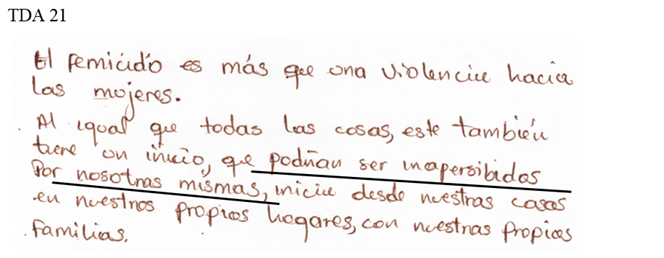 TDA 21
El femicidio es más que una violencia hacia
las mujeres.
Al igual que todas las cosas, este también
tiene un inicio, que podrían ser inapersibidos
Por nosotras mismas, inicia desde nuestras casas
en nuestros propios hogares, con nuestras propias
familias.